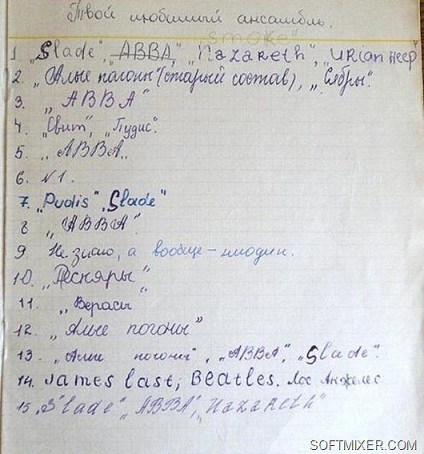 Твой любимый ансамбль.
"Smoke"
1. „Slade", „ABBA", „Nazareth", „URian Heep"
2. „Алые погоны" (старый состав), „Сябры".
3. „ABBA"
4. „Свит", „Пудис".
5. „ABBA„
6. N1.
7. „Pudis" „Slade"
8 „ABBA".
9. Не знаю, а вообще – ниодин.
10. „Песняры"
11. „Верасы
12. „Алые погоны"
13. „Алые погоны", „ABBA", „Slade".
14. James last, Beatles. Лос Анжелес
15 „Slade" „ABBA", „Nazareth"
SOFTMIXER.COM